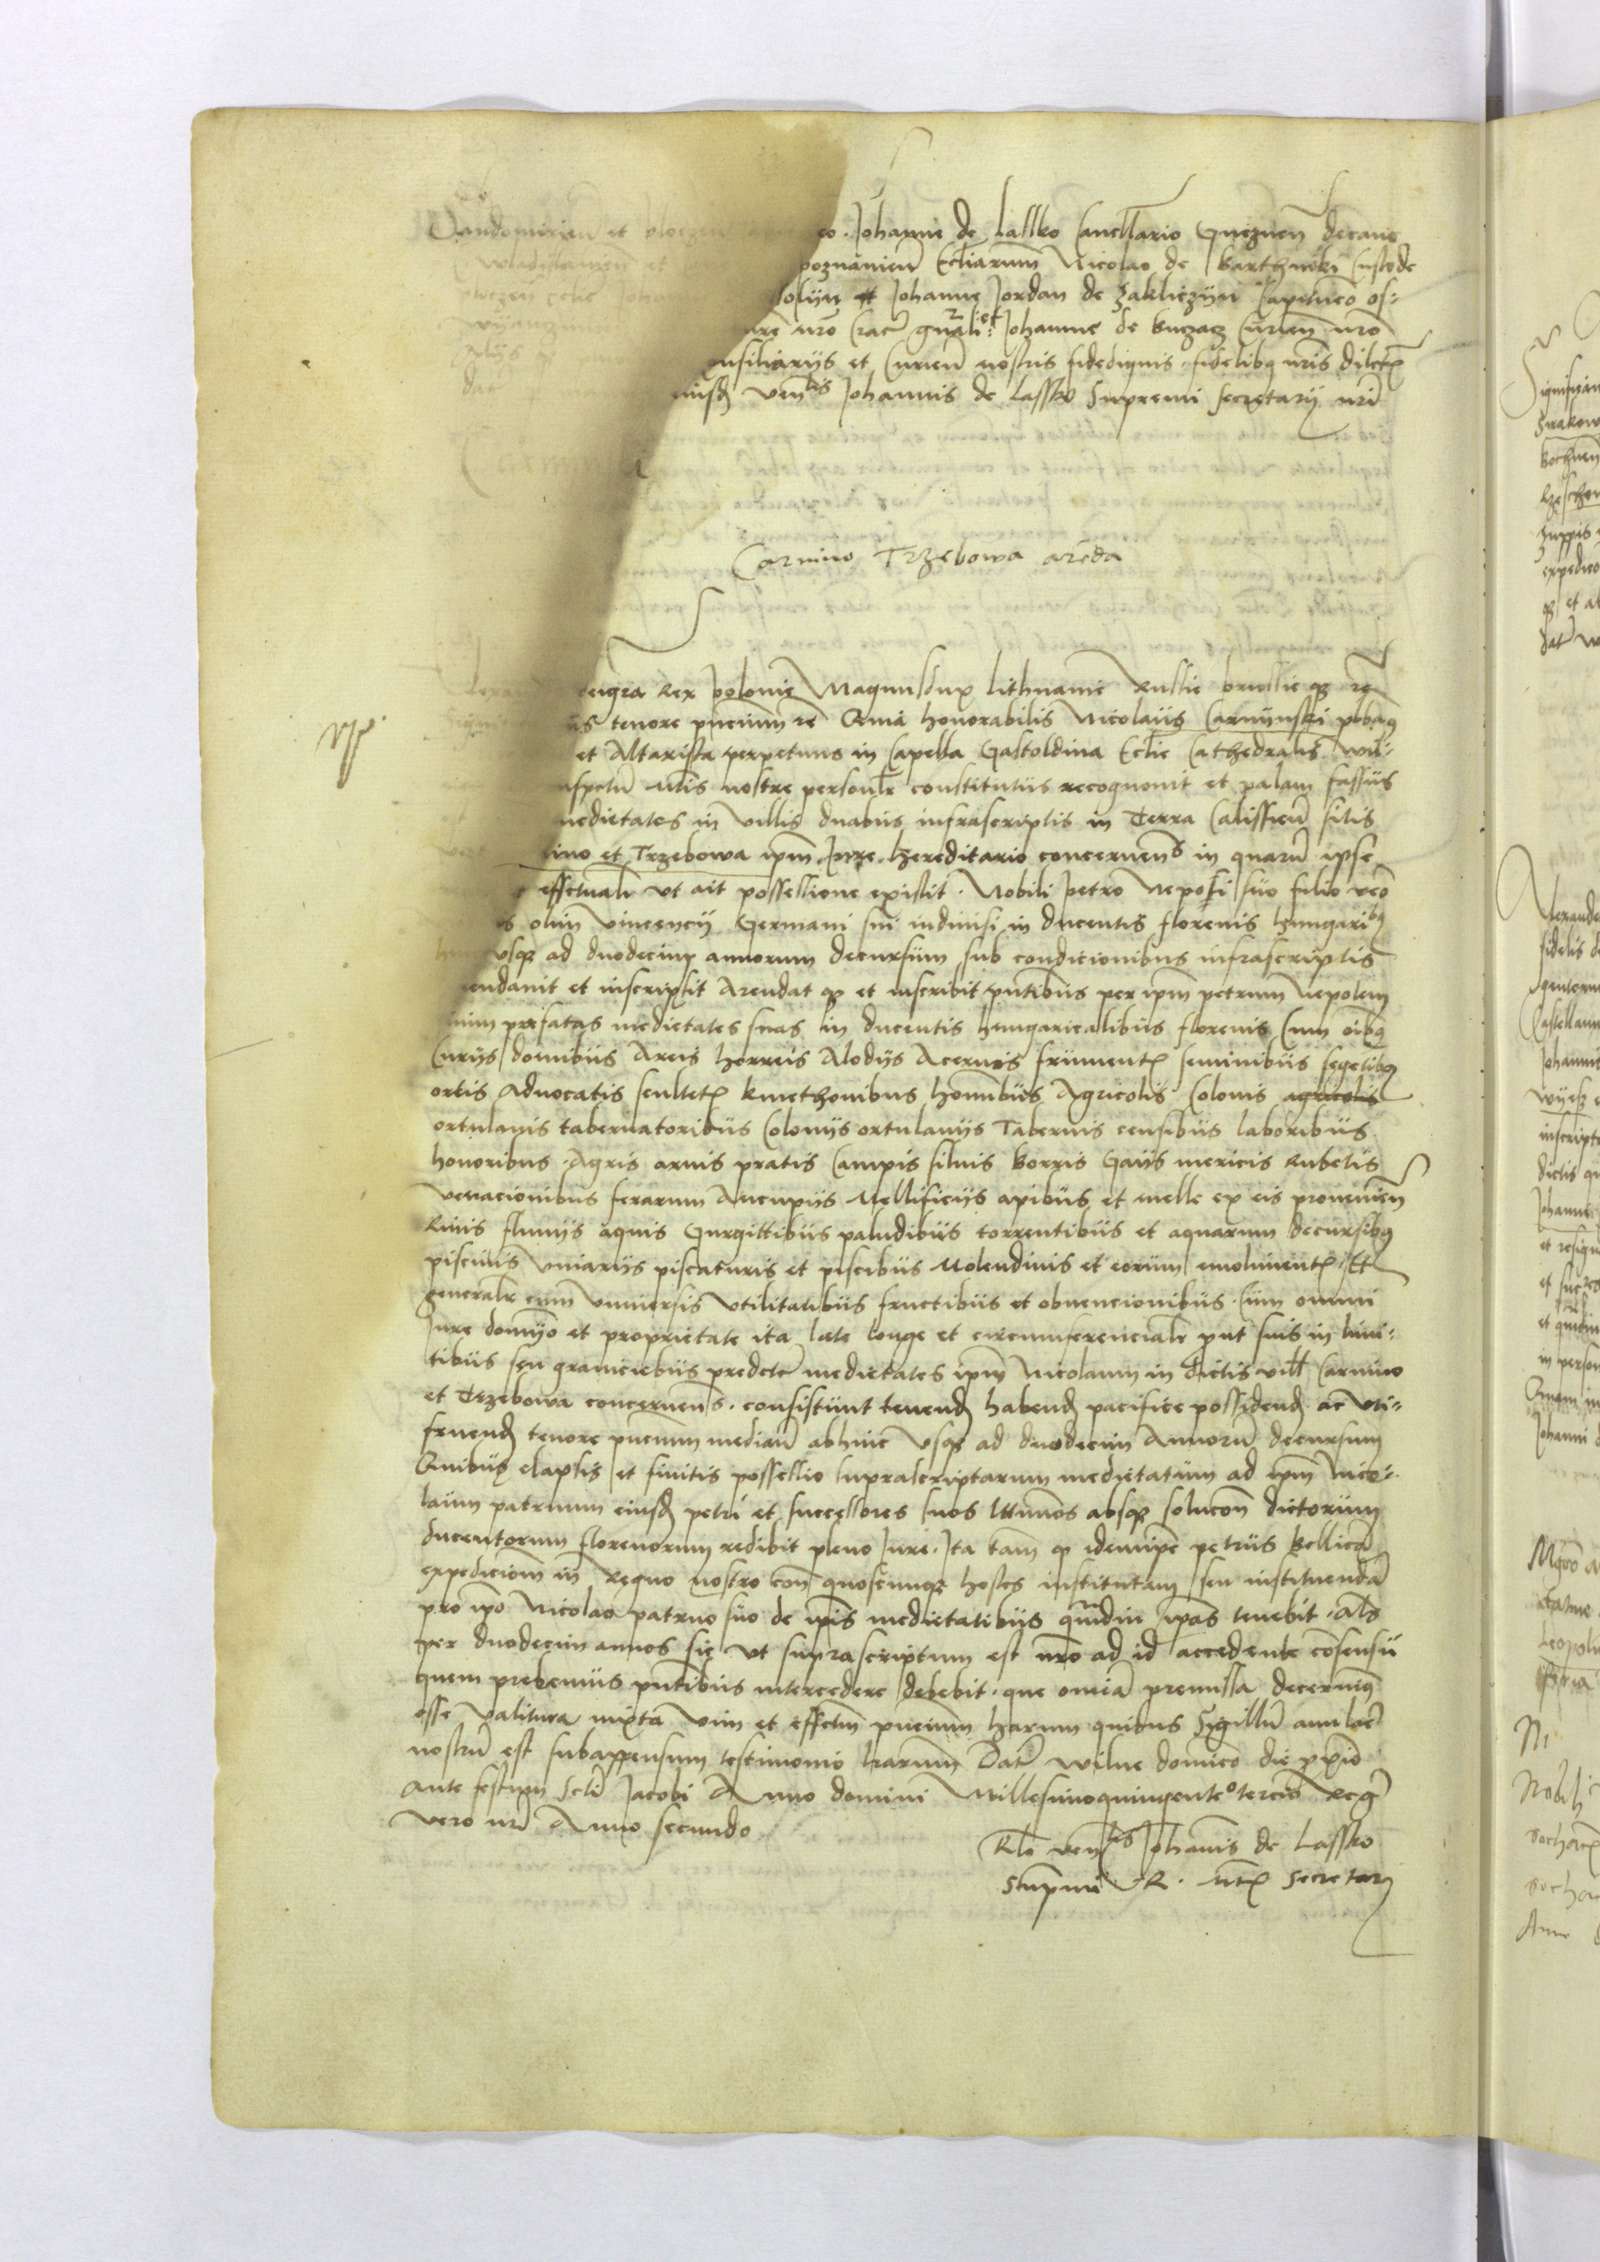 Sandomirien et ploczen Johanne de Lassko Cancellario Gneznen decano
Wladislavien et poznanien Eccliarum Nicolao de Barthniki Custode
ploczen Johanne Jordan de Zakliczyn Capitneo os-
nro Crac gnrali et Johanne de Buczacz Curien nro
nsiliarijs et Curien nostris fidedignis fidelibq nris dilectz
eiusd Venlis Johannis de Lassko Supremi secretarij nri
Carmino Trzebowa areda
deigra Rex polonie Magnusdux lithuanie Russie prussie qz
tenore pncium Quia honorabilis Nicolaus Carmynski
et Altarista perpetuus in Capella Gastoldina Eclie Cathedralis Wil-
nspctu Mtis nostre personlr constitutus recognouit et palam fassus
medietates in villis duabus infrascriptis in Terra Calissien sitis
mino et Trzebowa ipm Jure hereditario concernens in quaru ipse
effctualr ut ait possessione existit Nobili petro Nepoti suo filio
olim Vincencij Germani sui indiuisi in ducentis florenis hungaribq
usqz ad duodecim annorum decursum sub condicionibus infrascriptis
endauit et inscripsit Arendat qz et inscribit pntibus per ipm petrum Nepotem
prefatas medietates suas in ducentis hungaricalibus florenis Cum oibq
Curijs domibus Areis horreis Alodijs Aceruis frumentz seminibus segetibq
ortis Aduocatis scultetz kmethonibus hominbus Agricolis Colonis agricolis
ortulanis tabernatoribus Colonijs ortulanijs Tabernis censibus laboribus
honoribus Agris aruis pratis Campis siluis borris Gaijs mericis Rubetis
Venacionibus ferarum Aucupijs Mellificijs apibus et melle ex eis prouenien
Riuis fluuijs aquis Gurgittibus paludibus torrentibus et aquarum decursibq
piscinis Viuarijs piscaturis et piscibus Molendinis et eorum emolumentz Et
generalr cum Vniuersis Vtilitatibus fructibus et obuencionibus Cum omni
Jure domijo et proprietate ita late longe et circumferencialr put suis in limi-
tibus seu graniciebus predcte medietates ipm Nicolaum in dictis vill Carmino
et Trzebowa concernens consistunt tenend habend pacifice possidend ac vti-
fruend tenore pncium median abhinc Vsqz ad duodecim Annoru decursum
Quibus elapsis et finitis possessio suprascriptarum medietatum ad ipm Nico-
laum patruum eiusd petri et successores suos lttimos absqz solucon dictorum
ducentorum florenorum redibit pleno Jure Ita tam qz idemipe petrus bellica
expedicion in Regno nostro con quoscunqz hostes institutam seu instituenda
pro ipo Nicolao patruo suo de ipis medietatibus qmdiu ipas tenebit als
per duodecim annos sic Vt suprascriptum est nro ad id accedente consensu
quem prebemus pntibus intercedere debebit que omia premissa decernimq
esse Valitura iuxta Vim et effctum pncium harum quibus Sigillu
nostru est subappensum testimonio lrarum Dat wilne domico die pxio
ante festum scti Jacobi Anno domini Millesimoquingenteo tercio Regn
Vero nri Anno secundo
Rlo venlis Johannis de Lassko
Supmi R Mtz secretarij